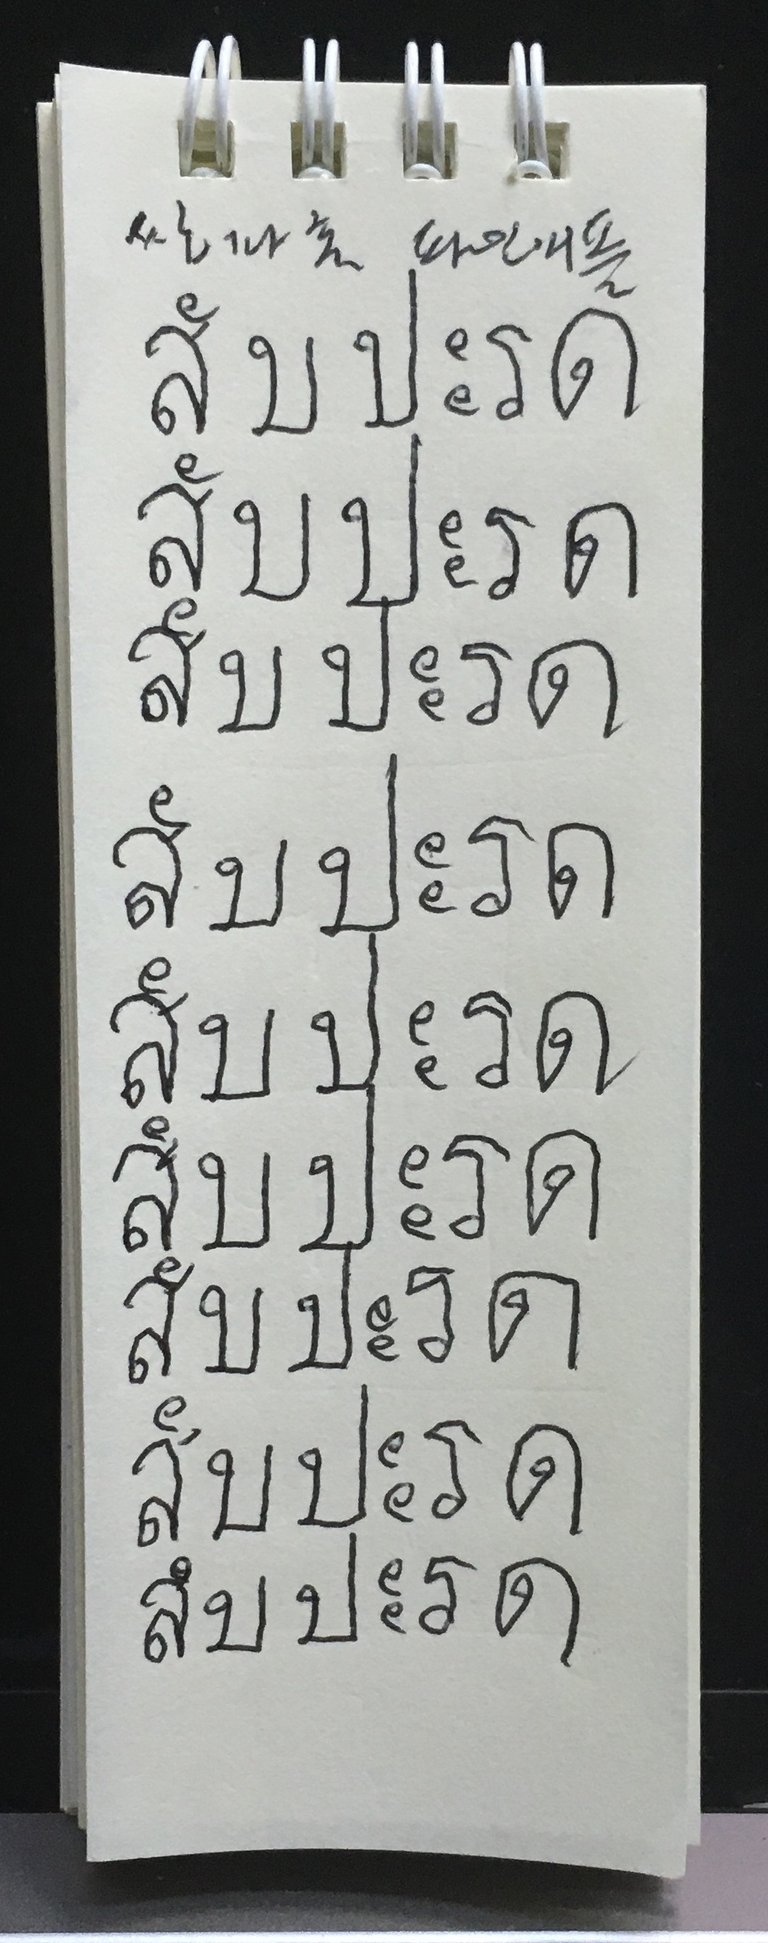 파인애플
สับปะรด
สับปะรด
สับปะรด
สับปะรด
สับปะรด
สับปะรด
สับปะรด
สับปะรด
สับปะรด